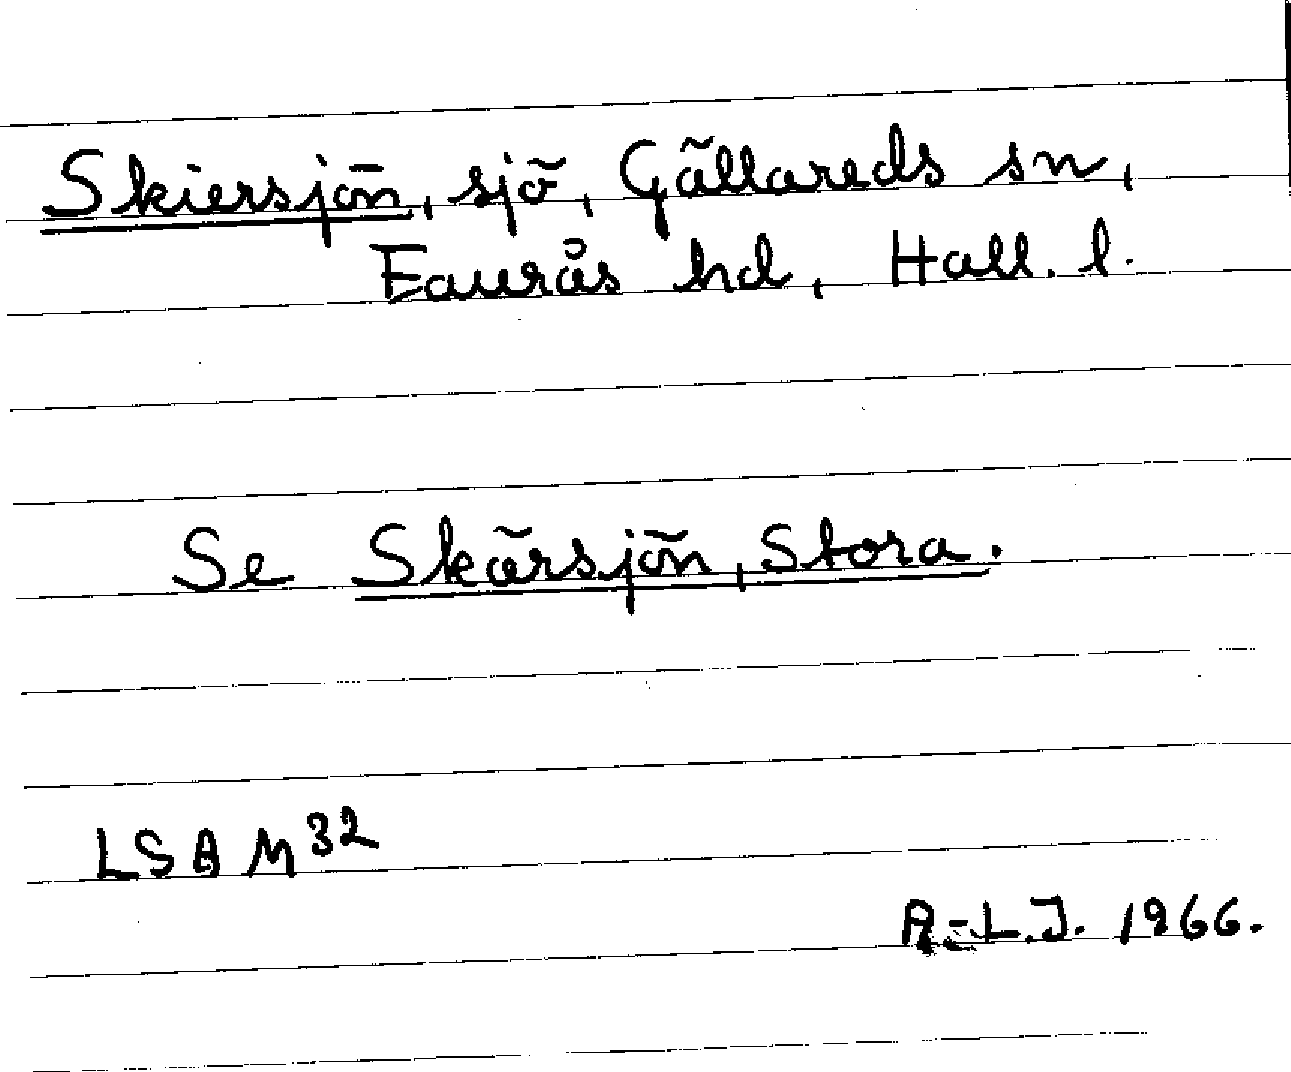 Skiersjön, sjö, Gällareds sn,
Faurås hd, Hall. l.
Se Skärsjön, Stora.
LSA M32
A-L.J. 1966.